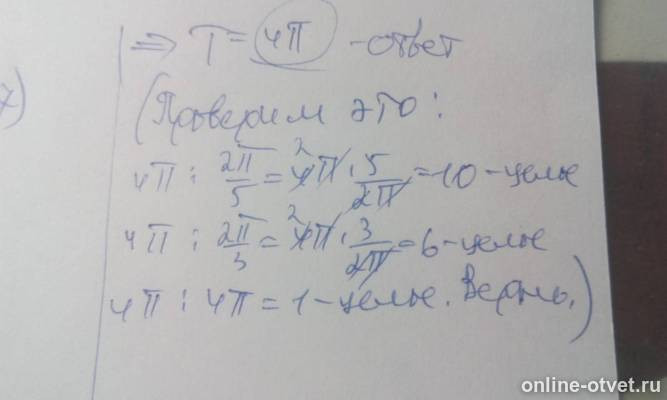 7)
=> T = 4π - ответ
(Проверим это:
4π : 2π/5 = 4π · 5/2π = 10 - целые
2
4π : 2π/3 = 4π · 3/2π = 6 - целые
2
4π : 4π = 1 - целые. Верно.)
online-otvet.ru